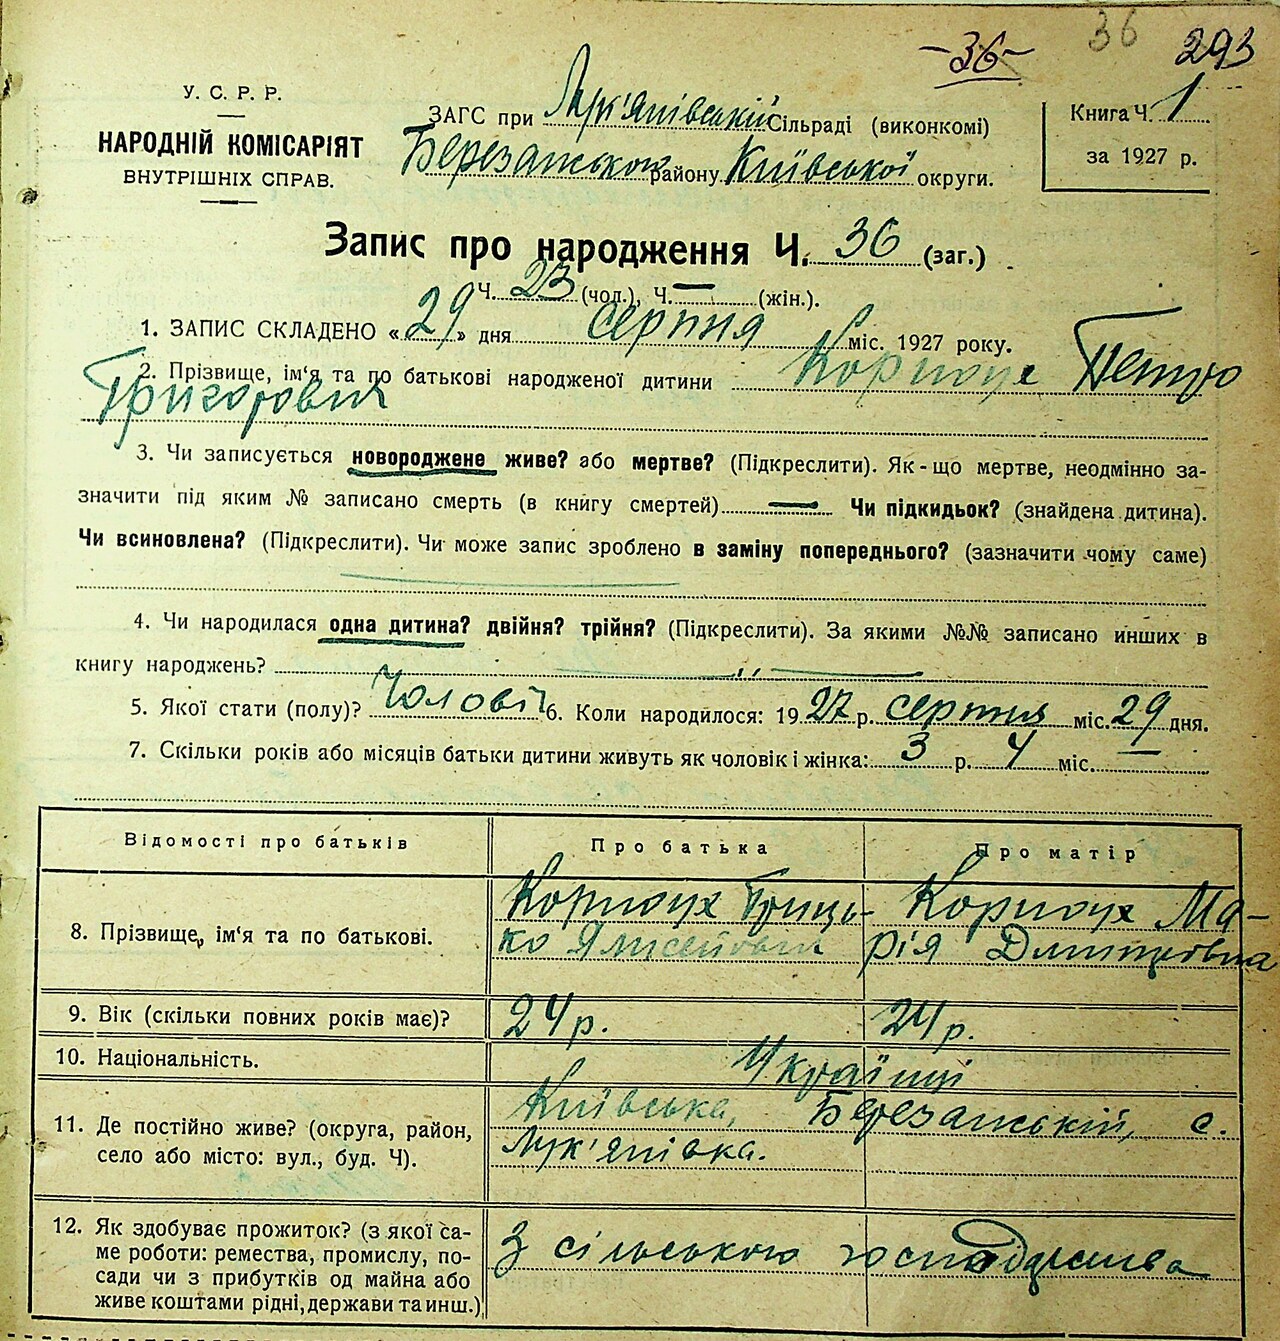 -36- 36 293
У. С. Р. Р.
НАРОДНІЙ КОМІСАРІЯТ
ВНУТРІШНІХ СПРАВ.
ЗАГС при Лук'янівській Сільраді (виконкомі)
Березанського району Київської округи.
Книга Ч. 1
за 1927 р.
Запис про народження Ч. 36 (заг.)
Ч. 23 (чол.), Ч. — (жін.).
1. ЗАПИС СКЛАДЕНО «29» дня серпня міс. 1927 року.
2. Прізвище, ім'я та по батькові народженої дитини Корнюх Петро
Григорович
3. Чи записується новороджене живе? або мертве? (Підкреслити). Як-що мертве, неодмінно за-
значити під яким № записано смерть (в книгу смертей) — Чи підкидьок? (знайдена дитина).
Чи всиновлена? (Підкреслити). Чи може запис зроблено в заміну попереднього? (зазначити чому саме)
4. Чи народилася одна дитина? двійня? трійня? (Підкреслити). За якими №№ записано инших в
книгу народжень? „
5. Якої стати (полу)? Чолові 6. Коли народилося: 1927 р. серпня міс. 29 дня.
7. Скільки років або місяців батьки дитини живуть як чоловік і жінка: 3 р. 4 міс. —
Відомості про батьків Про батька Про матір
8. Прізвище, ім'я та по батькові. Корнюх Гриць- Корнюх Ма-
ко Ялисейович рія Дмитровна
9. Вік (скільки повних років має)? 24 р. 24 р.
10. Національність. Українці
11. Де постійно живе? (округа, район, Київська, Березанській, с.
село або місто: вул., буд. Ч). Лук'янівка.
12. Як здобуває прожиток? (з якої са-
ме роботи: ремества, промислу, по- З сільського господарства
сади чи з прибутків од майна або
живе коштами рідні, держави та инш.)